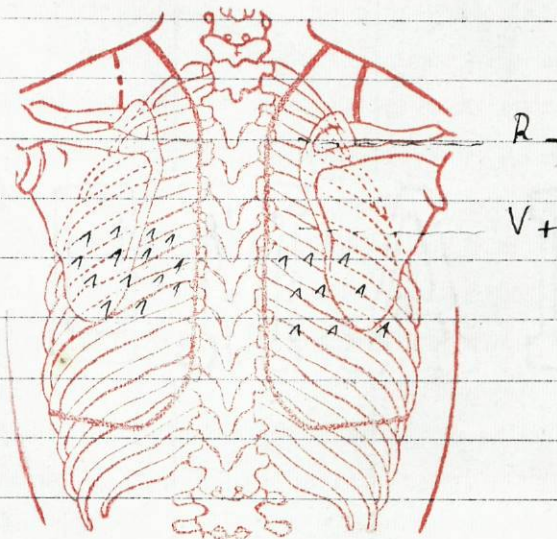 R -
V +